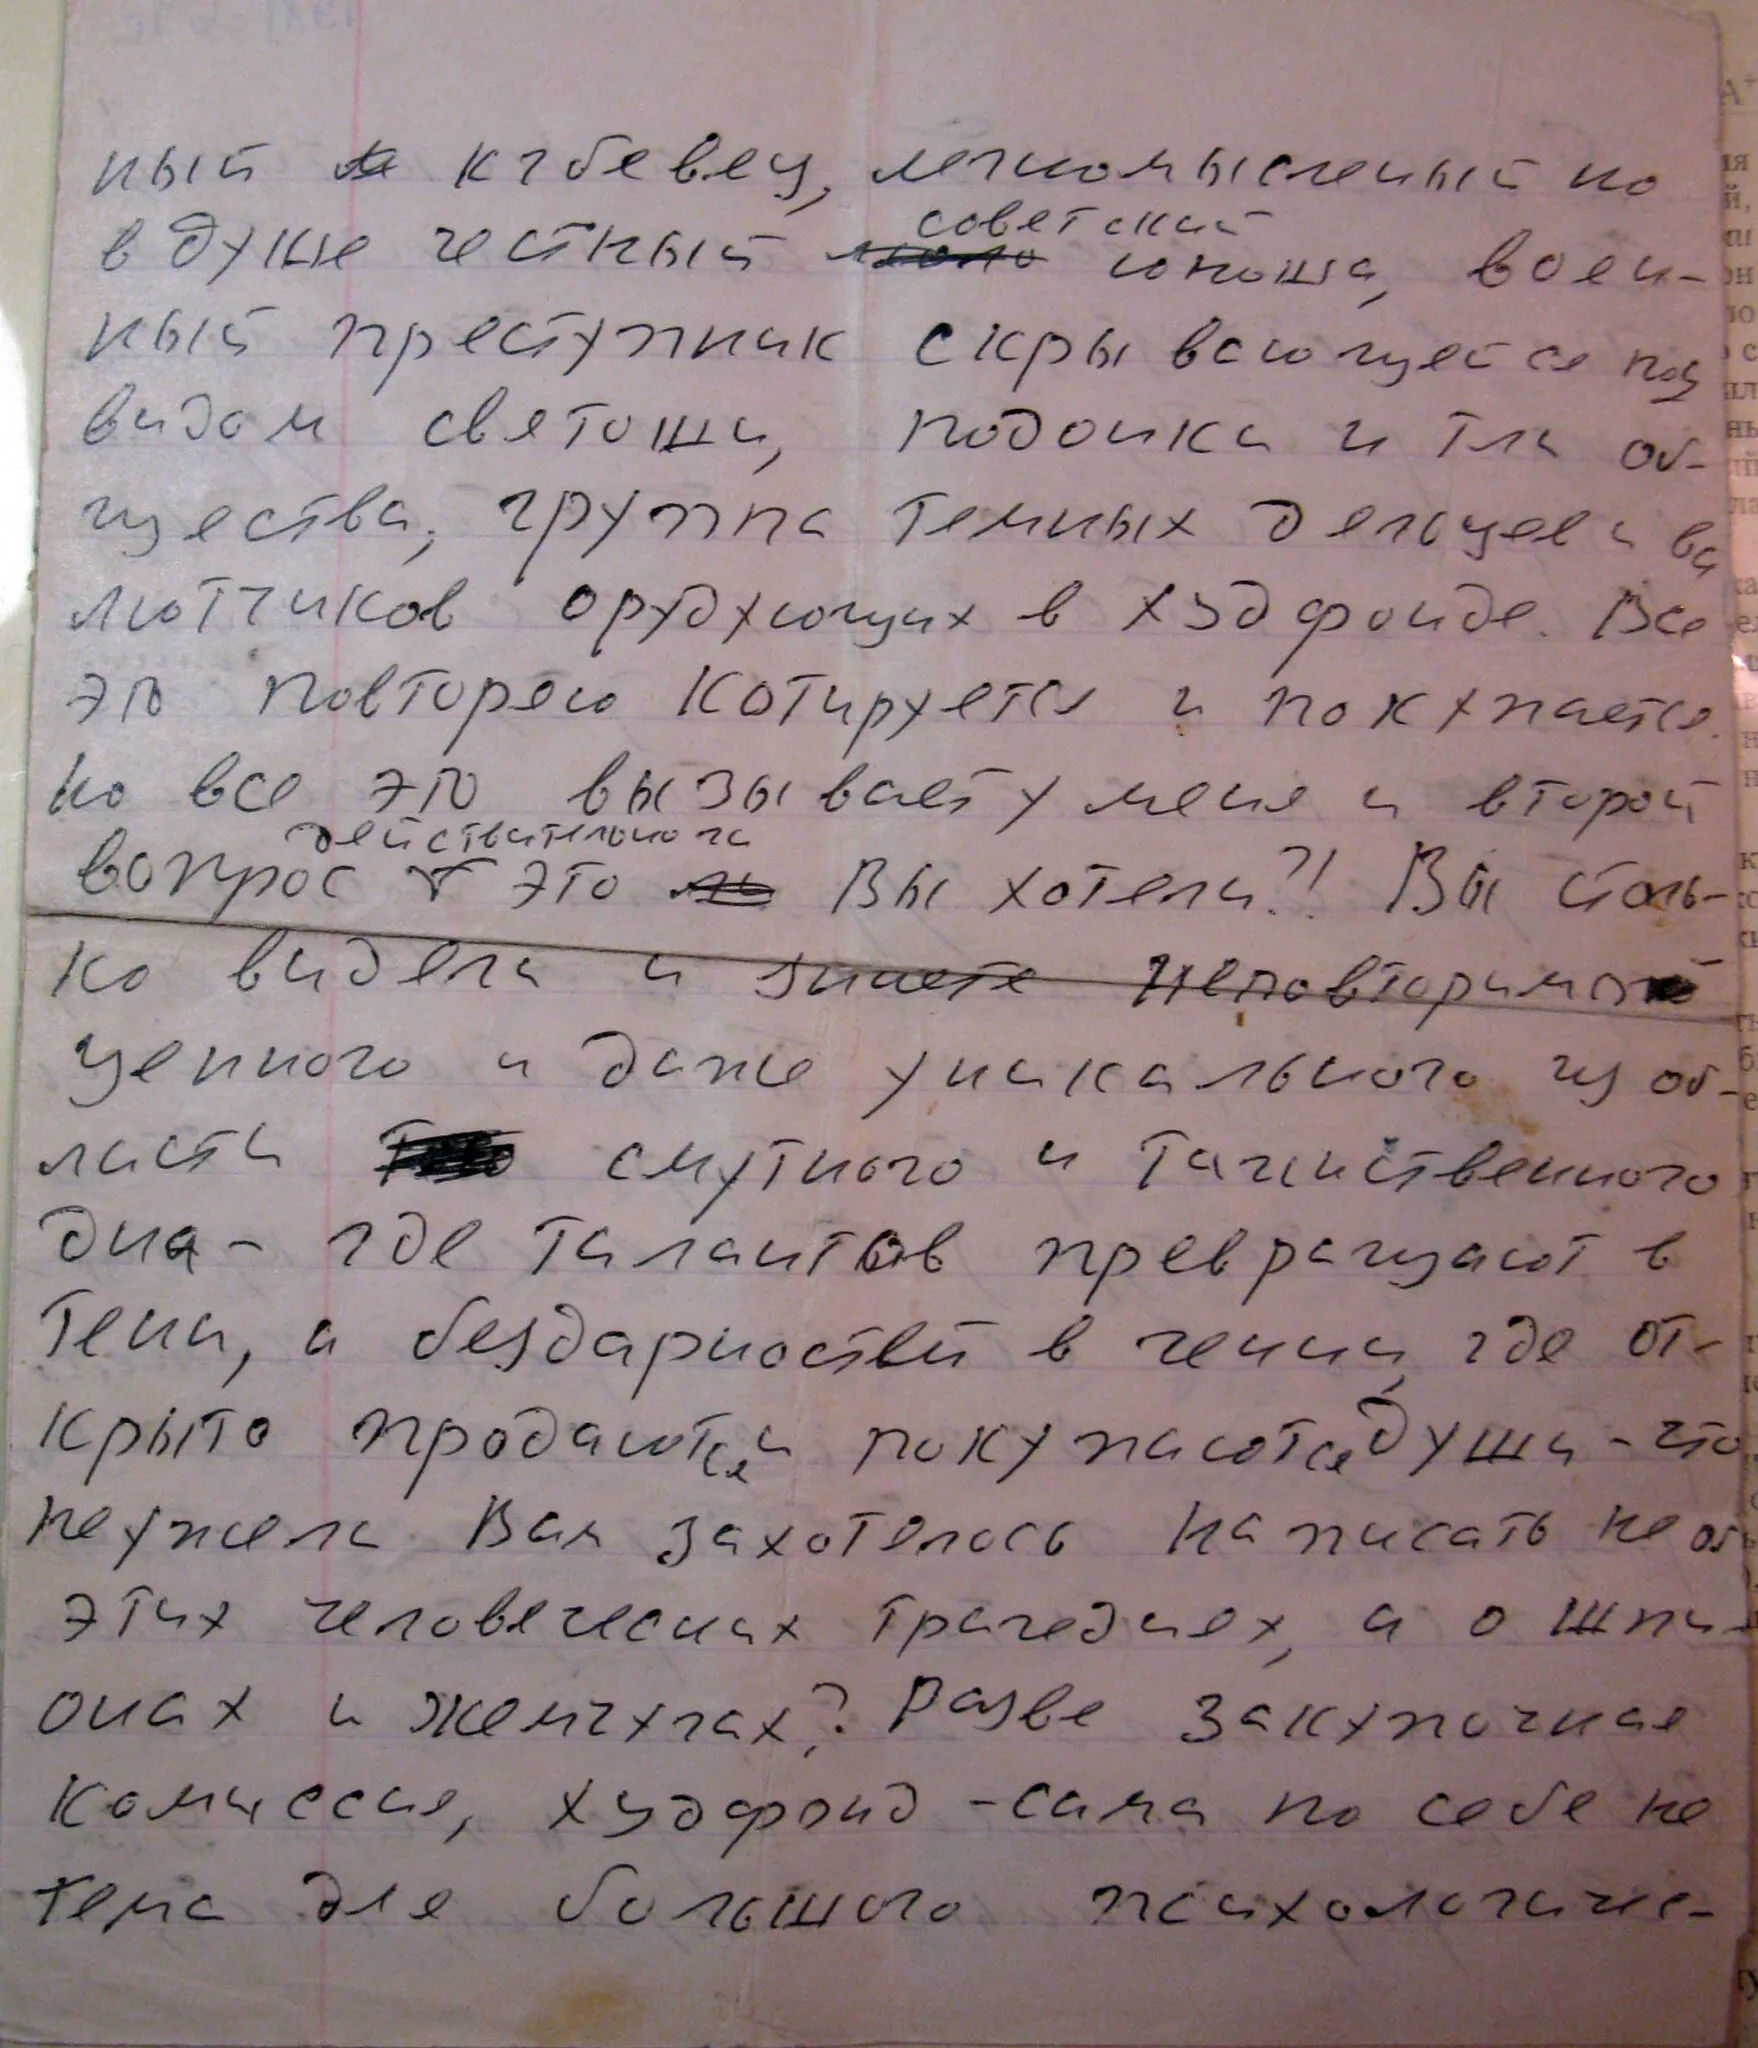 ный кгбевец, легкомысленный но
в душе честный советский юноша, воен-
ный преступник скрывающейся под
видом святоши, подонки и тля об-
щества, группа темных дельцов и ва
лютчиков орудующих в худфонде. Все
это повторяю котируется и покупается.
Но все это вызывает у меня и второй
вопрос действительно ли это Вы хотели?! Вы столь-
ко видели и знаете неповторимо
ценного и даже уникального из об-
ласти смутного и таинственного
дна - где талантов превращают в
тени, а бездарностей в гении, где от-
крыто продаются и покупаются души - что
неужели Вам захотелось написать не об
этих человеческих трагедиях, а о шпи-
онах и жемчугах? Разве закупочная
комиссия, худфонд - сама по себе не
тема для большого психологичес-